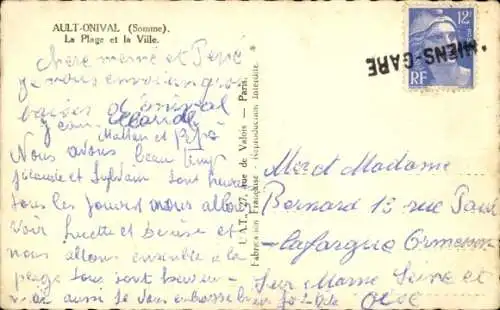 AULT-ONIVAL (Somme).
La Plage et la Ville.
Chere mémé et Pepé
je vous envoi un gros
baiser d'onival
Jean Claude
Maman et papa
Nous avons beau temp
et Sylvain sont heureux
tous les jours nous allons
voir Lucette et denise et
nous allons ensemble a la
plage tous sont heureux
moi aussi Je vous embrasse bien fort
L'U.A.T., 27, rue de Valois - Paris.
Fabrication Française - Reproduction Interdite.
12F
RF
AMIENS-GARE
Mr et Madame
Bernard 13 rue Paul
Lafargue Ormesson
Sur Marne Seine et
Oise